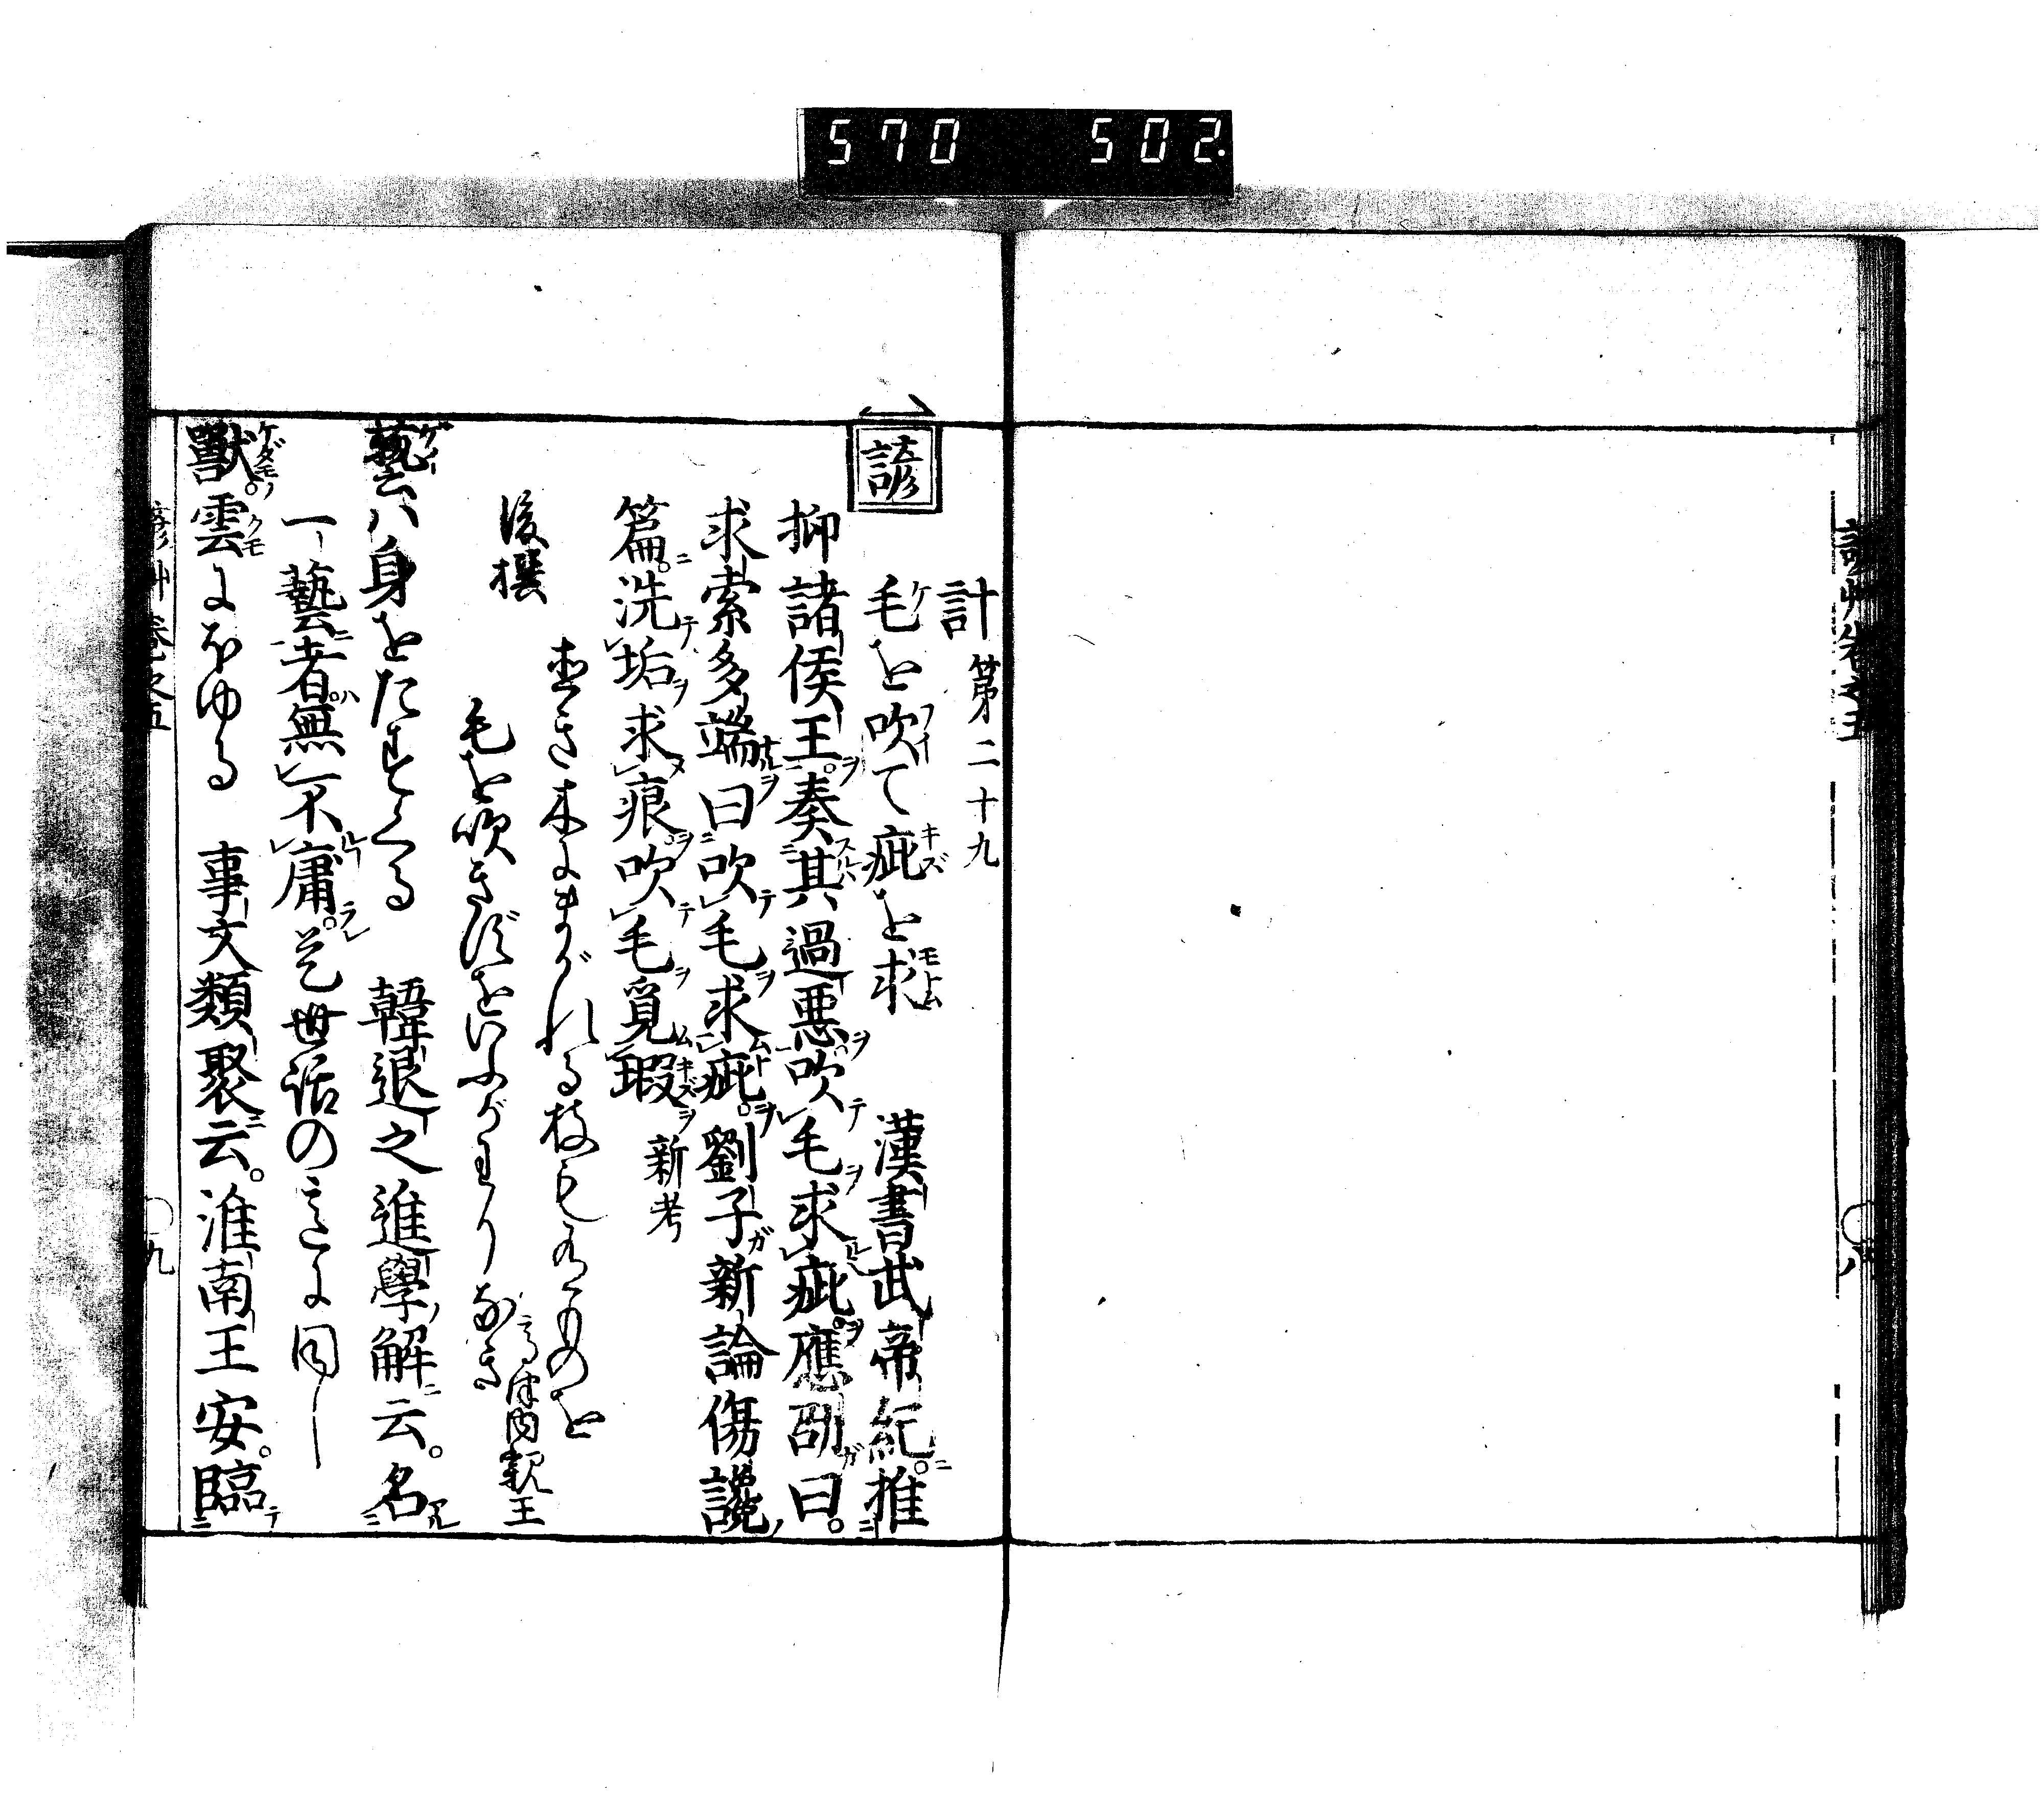 570 502.
計第二十九
諺
毛を吹て疵を求 漢書武帝紀推
抑諸侯王奏其過悪吹毛求疵應劭曰
求索多端曰吹毛求疵劉子新論傷讒
篇洗垢求痕吹毛覓瑕 新考
直き木にまがれる枝もあるものを
後撰
毛を吹ききずをいふがわりなき 高津内親王
藝ハ身をたすくる 韓退之進學解云名
一藝者無不庸是世話の意に同し
獣雲にほゆる 事文類聚云淮南王安臨
諺艸巻之五 九